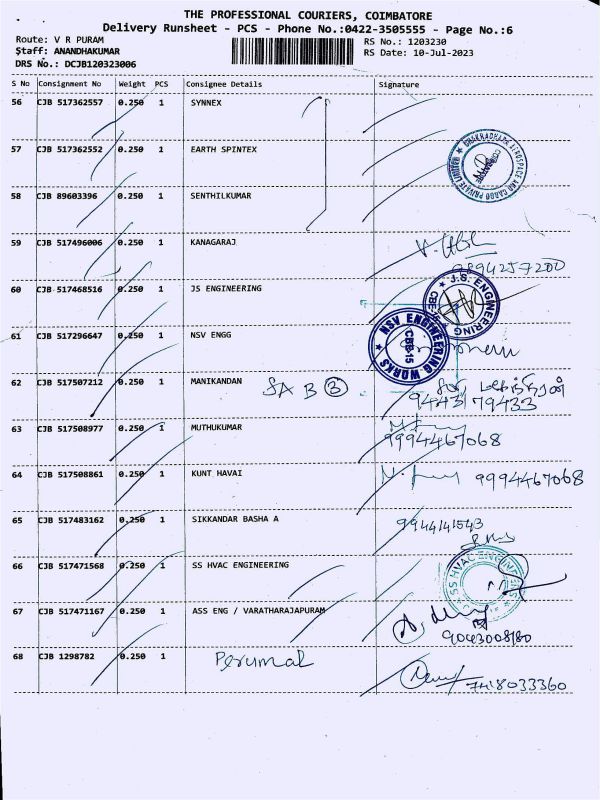 THE PROFESSIONAL COURIERS, COIMBATORE
Delivery Runsheet - PCS - Phone No.:0422-3505555 - Page No.:6
Route: V R PURAM RS No.: 1203230
Staff: ANANDHAKUMAR RS Date: 10-Jul-2023
DRS No.: DCJB120323006
S No Consignment No Weight PCS Consignee Details Signature
56 CJB 517362557 0.250 1 SYNNEX
57 CJB 517362552 0.250 1 EARTH SPINTEX
CHAKRADHARA AEROSPACE AND CARGO PRIVATE LIMITED
58 CJB 89603396 0.250 1 SENTHILKUMAR
59 CJB 517496006 0.250 1 KANAGARAJ
9894257200
60 CJB 517468516 0.250 1 JS ENGINEERING
J.S. ENGINEERING
61 CJB 517296647 0.250 1 NSV ENGG
NSV ENGINEERING WORKS
CBE-15
62 CJB 517507212 0.250 1 MANIKANDAN SA B 3
9443179433
63 CJB 517508977 0.250 1 MUTHUKUMAR
9994467068
64 CJB 517508861 0.250 1 KUNT HAVAI 9994467068
65 CJB 517483162 0.250 1 SIKKANDAR BASHA A 9944141543
66 CJB 517471568 0.250 1 SS HVAC ENGINEERING
SS HVAC ENGINEERS
67 CJB 517471167 0.250 1 ASS ENG / VARATHARAJAPURAM
9043008180
68 CJB 1298782 0.250 1 Perumal
7418033360